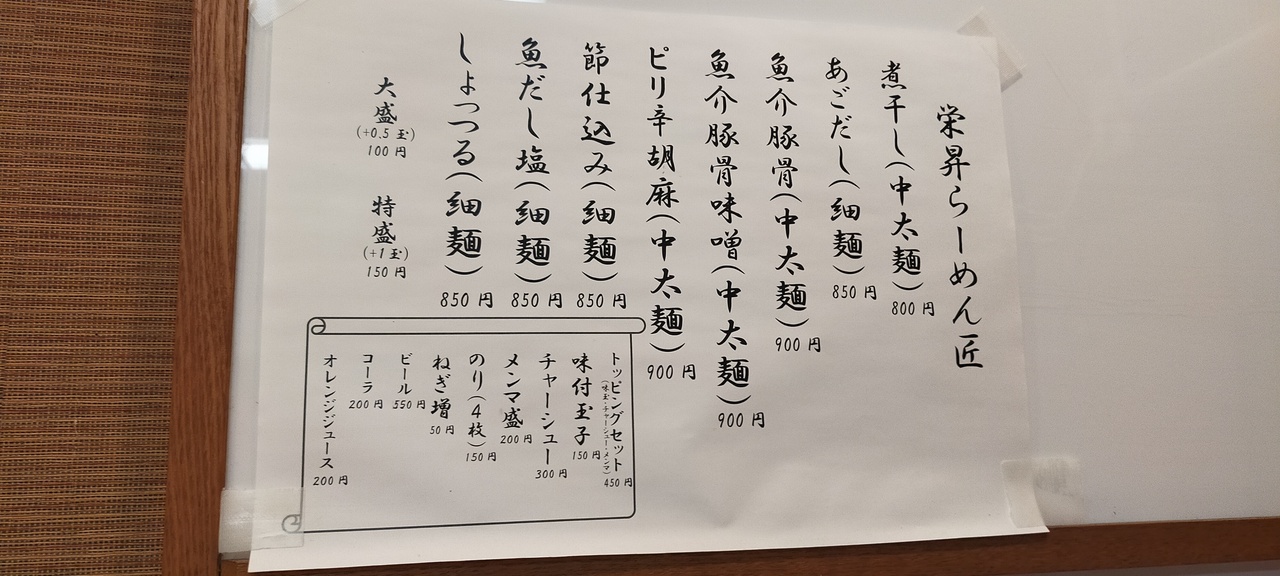 栄昇らーめん匠
煮干し(中太麺)
800 円
あごだし(細麺)
850 円
魚介豚骨(中太麺)
900 円
魚介豚骨味噌(中太麺)
900 円
ピリ辛胡麻(中太麺)
900 円
節仕込み(細麺)
850 円
魚だし塩(細麺)
850 円
しょっつる(細麺)
850 円
大盛
(+0.5 玉)
100 円
特盛
(+1 玉)
150 円
トッピングセット
(味玉・チャーシュー・メンマ)
450 円
味付玉子
150 円
チャーシュー
300 円
メンマ盛
200 円
のり(4枚)
150 円
ねぎ増
50 円
ビール
550 円
コーラ
200 円
オレンジジュース
200 円